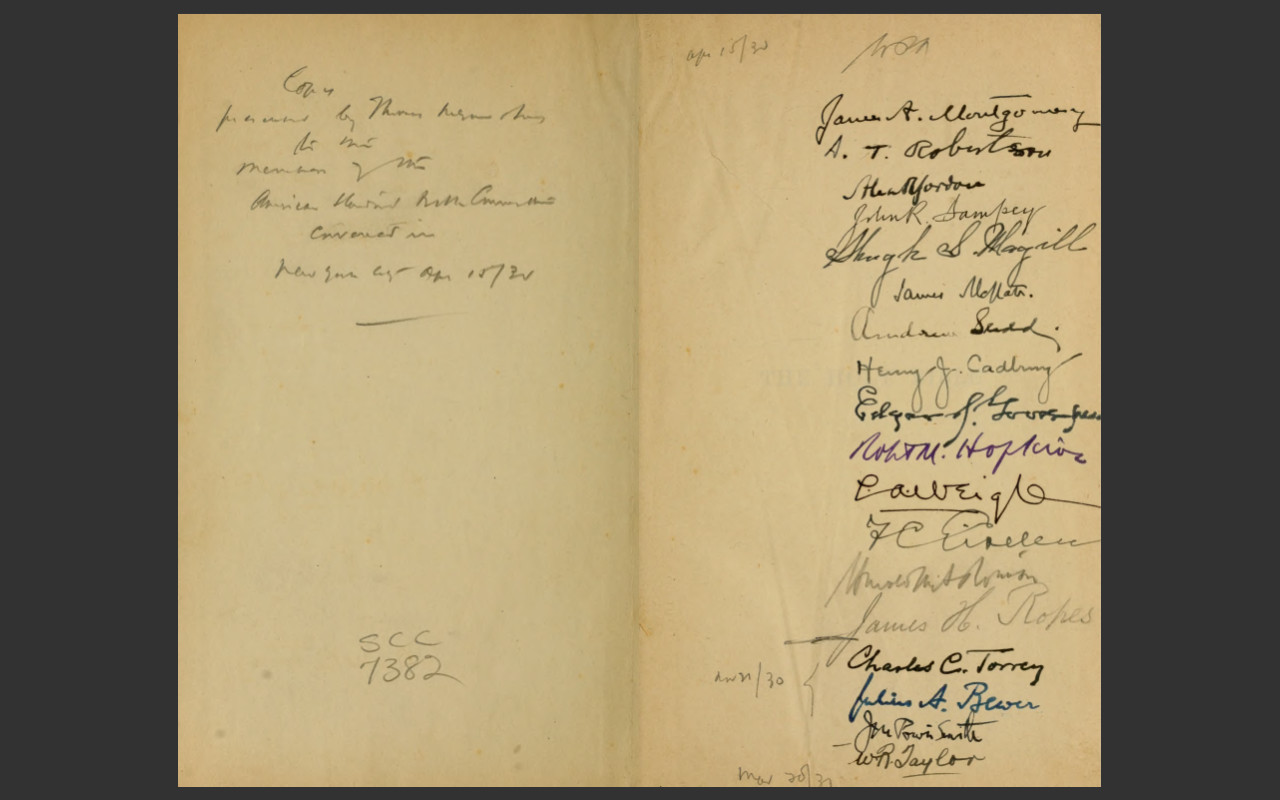 Copy
presented by Thomas Nelson & Sons
to the
members of the
American Standard Bible Committee
convened in
New York City Apr 15/30
SCC
7382
Apr 15/30
James A. Montgomery
A. T. Robertson
Alex R Gordon
John R. Sampey
Hugh S. Magill
James Moffatt.
Andrew Sledd.
Henry J. Cadbury
Edgar J. Goodspeed
Robt M. Hopkins
L A Weigle
F C Eiselen
James H. Ropes
Charles C. Torrey
/30
Julius A. Bewer
J M Powis Smith
W R Taylor
Mar 20/31